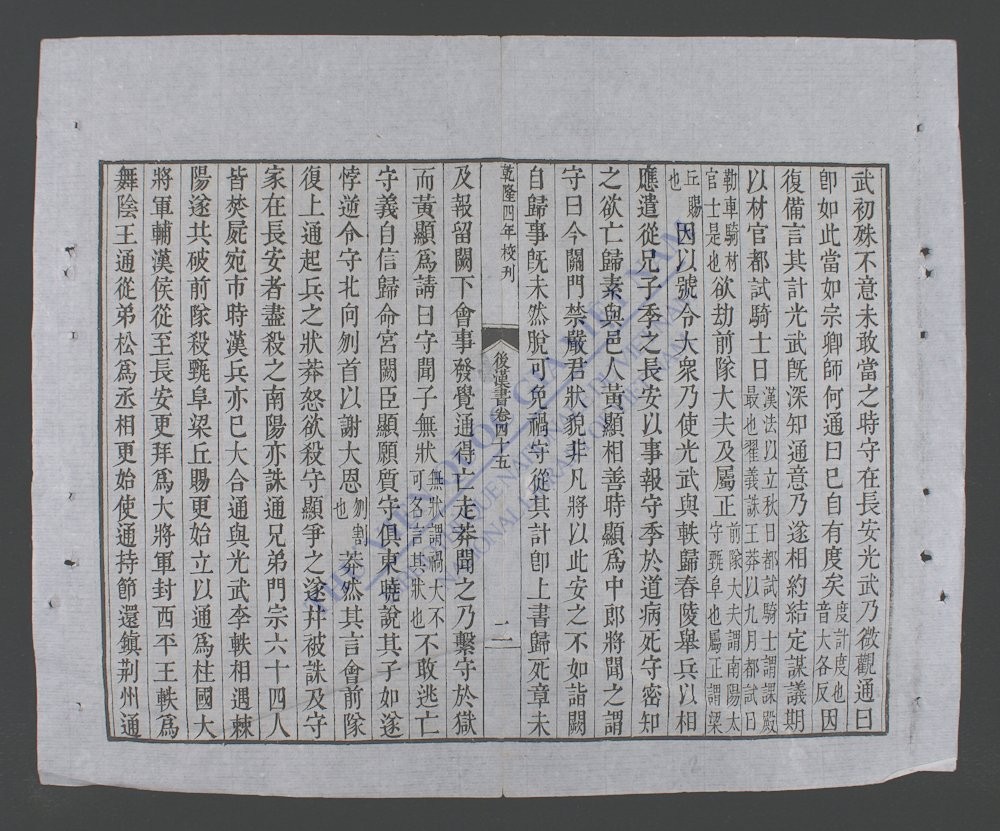 武初殊不意未敢當之時守在長安光武乃微觀通曰
卽如此當如宗卿師何通曰已自有度矣度計度也音大各反因
復備言其計光武旣深知通意乃遂相約結定謀議期
以材官都試騎士日漢法以立秋日都試騎士謂課殿最也翟義誅王莽以九月都試日
勒車騎材官士是也欲劫前隊大夫及屬正前隊大夫謂南陽太守甄阜也屬正謂梁
丘賜也因以號令大衆乃使光武與軼歸舂陵舉兵以相
應遣從兄子季之長安以事報守季於道病死守密知
之欲亡歸素與邑人黃顯相善時顯爲中郎將聞之謂
守曰今關門禁嚴君狀貌非凡將以此安之不如詣闕
自歸事旣未然脫可免禍守從其計卽上書歸死章未
乾隆四年校刊
後漢書卷四十五
二
及報留闕下會事發覺通得亡走莽聞之乃繫守於獄
而黃顯爲請曰守聞子無狀無狀謂禍大不可名言其狀也不敢逃亡
守義自信歸命宮闕臣顯願質守俱東曉說其子如遂
悖逆令守北向刎首以謝大恩刎割也莽然其言會前隊
復上通起兵之狀莽怒欲殺守顯爭之遂幷被誅及守
家在長安者盡殺之南陽亦誅通兄弟門宗六十四人
皆焚屍宛市時漢兵亦已大合通與光武李軼相遇棘
陽遂共破前隊殺甄阜梁丘賜更始立以通爲柱國大
將軍輔漢侯從至長安更拜爲大將軍封西平王軼爲
舞陰王通從弟松爲丞相更始使通持節還鎭荆州通